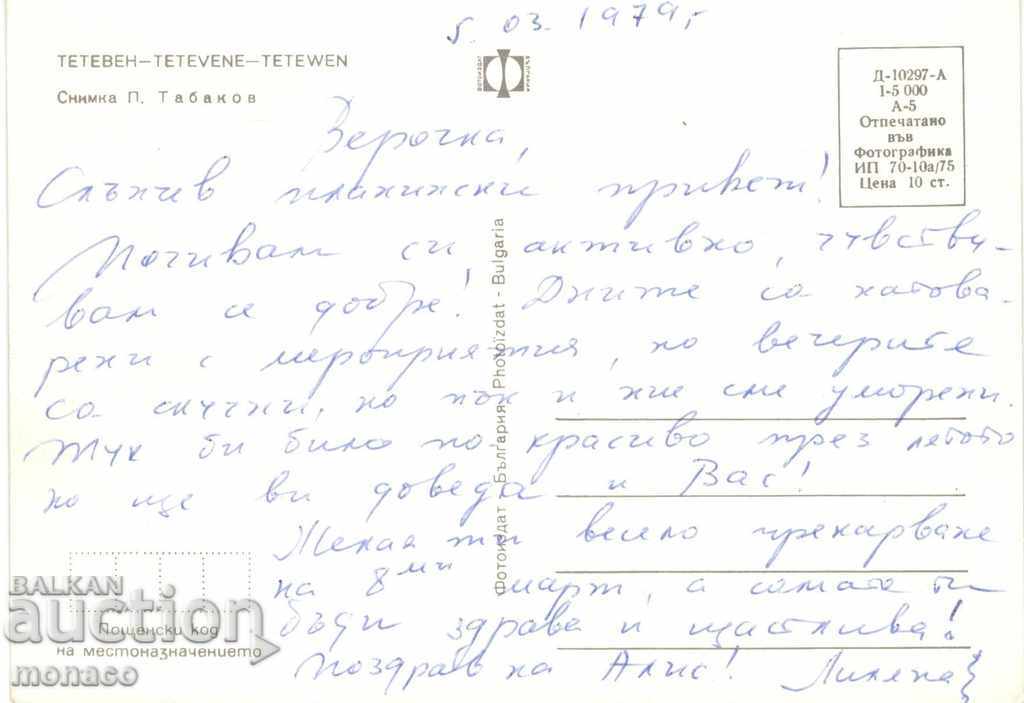 5. 03. 1979,
ТЕТЕВЕН—TETEVENE—TETEWEN
Снимка П. Табаков
ФОТОИЗДАТ
БЪЛГАРИЯ
Д-10297-А
1-5 000
А-5
Отпечатано
във
Фотографика
ИП 70-10а/75
Цена 10 ст.
Верочка,
Слънчев планински привет!
Почивам си активно, чувству-
вам се добре! Дните са натова-
рени с мероприятия, но вечерите
са скучни, но пък и ние сме уморени.
Тук би било по-красиво през лятото
но ще ви доведа и Вас!
Желая ти весело прекарване
на 8ми март, а самата ти
бъди здрава и щастлива!
Поздрав на Алис! Лиляна
Фотоиздат - България Photoizdat - Bulgaria
Пощенски код
на местоназначението
BALKAN
auction
monaco